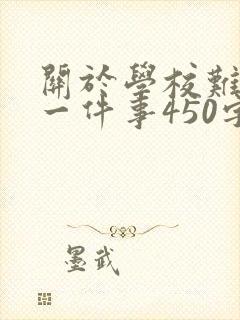 關於學校難
一件事450字
墨武